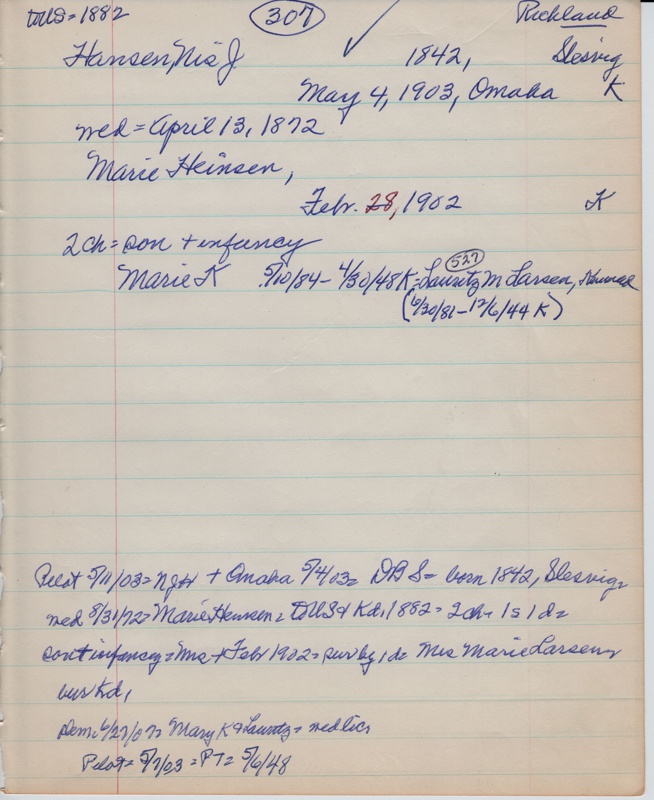 to US = 1882 307 Richland
Hansen, Nis J 1842, Slesvig
May 4, 1903, Omaha K
wed = April 13, 1872
Marie Heinsen,
Febr. 28, 1902 K
2 ch = son + infancy
527
Marie K 5/10/84 - 4/30/48 K = Lauritz M Larsen,
(6/30/81 - 12/6/44 K)
Pilot 5/11/03 = NJH + Omaha 5/4/03 = DBS = born 1842, Slesvig =
wed 8/31/72 = Marie Hensen = to US + Kd, 1882 = 2 ch = 1 s 1 d =
son + infancy = Mrs + Febr 1902 = sur by 1 d = Mrs Marie Larsen =
bur Kd,
Dem: 6/27/07 = Mary K + Lauritz = wed lic,
Pilot = 5/7/03 = PT = 5/6/48